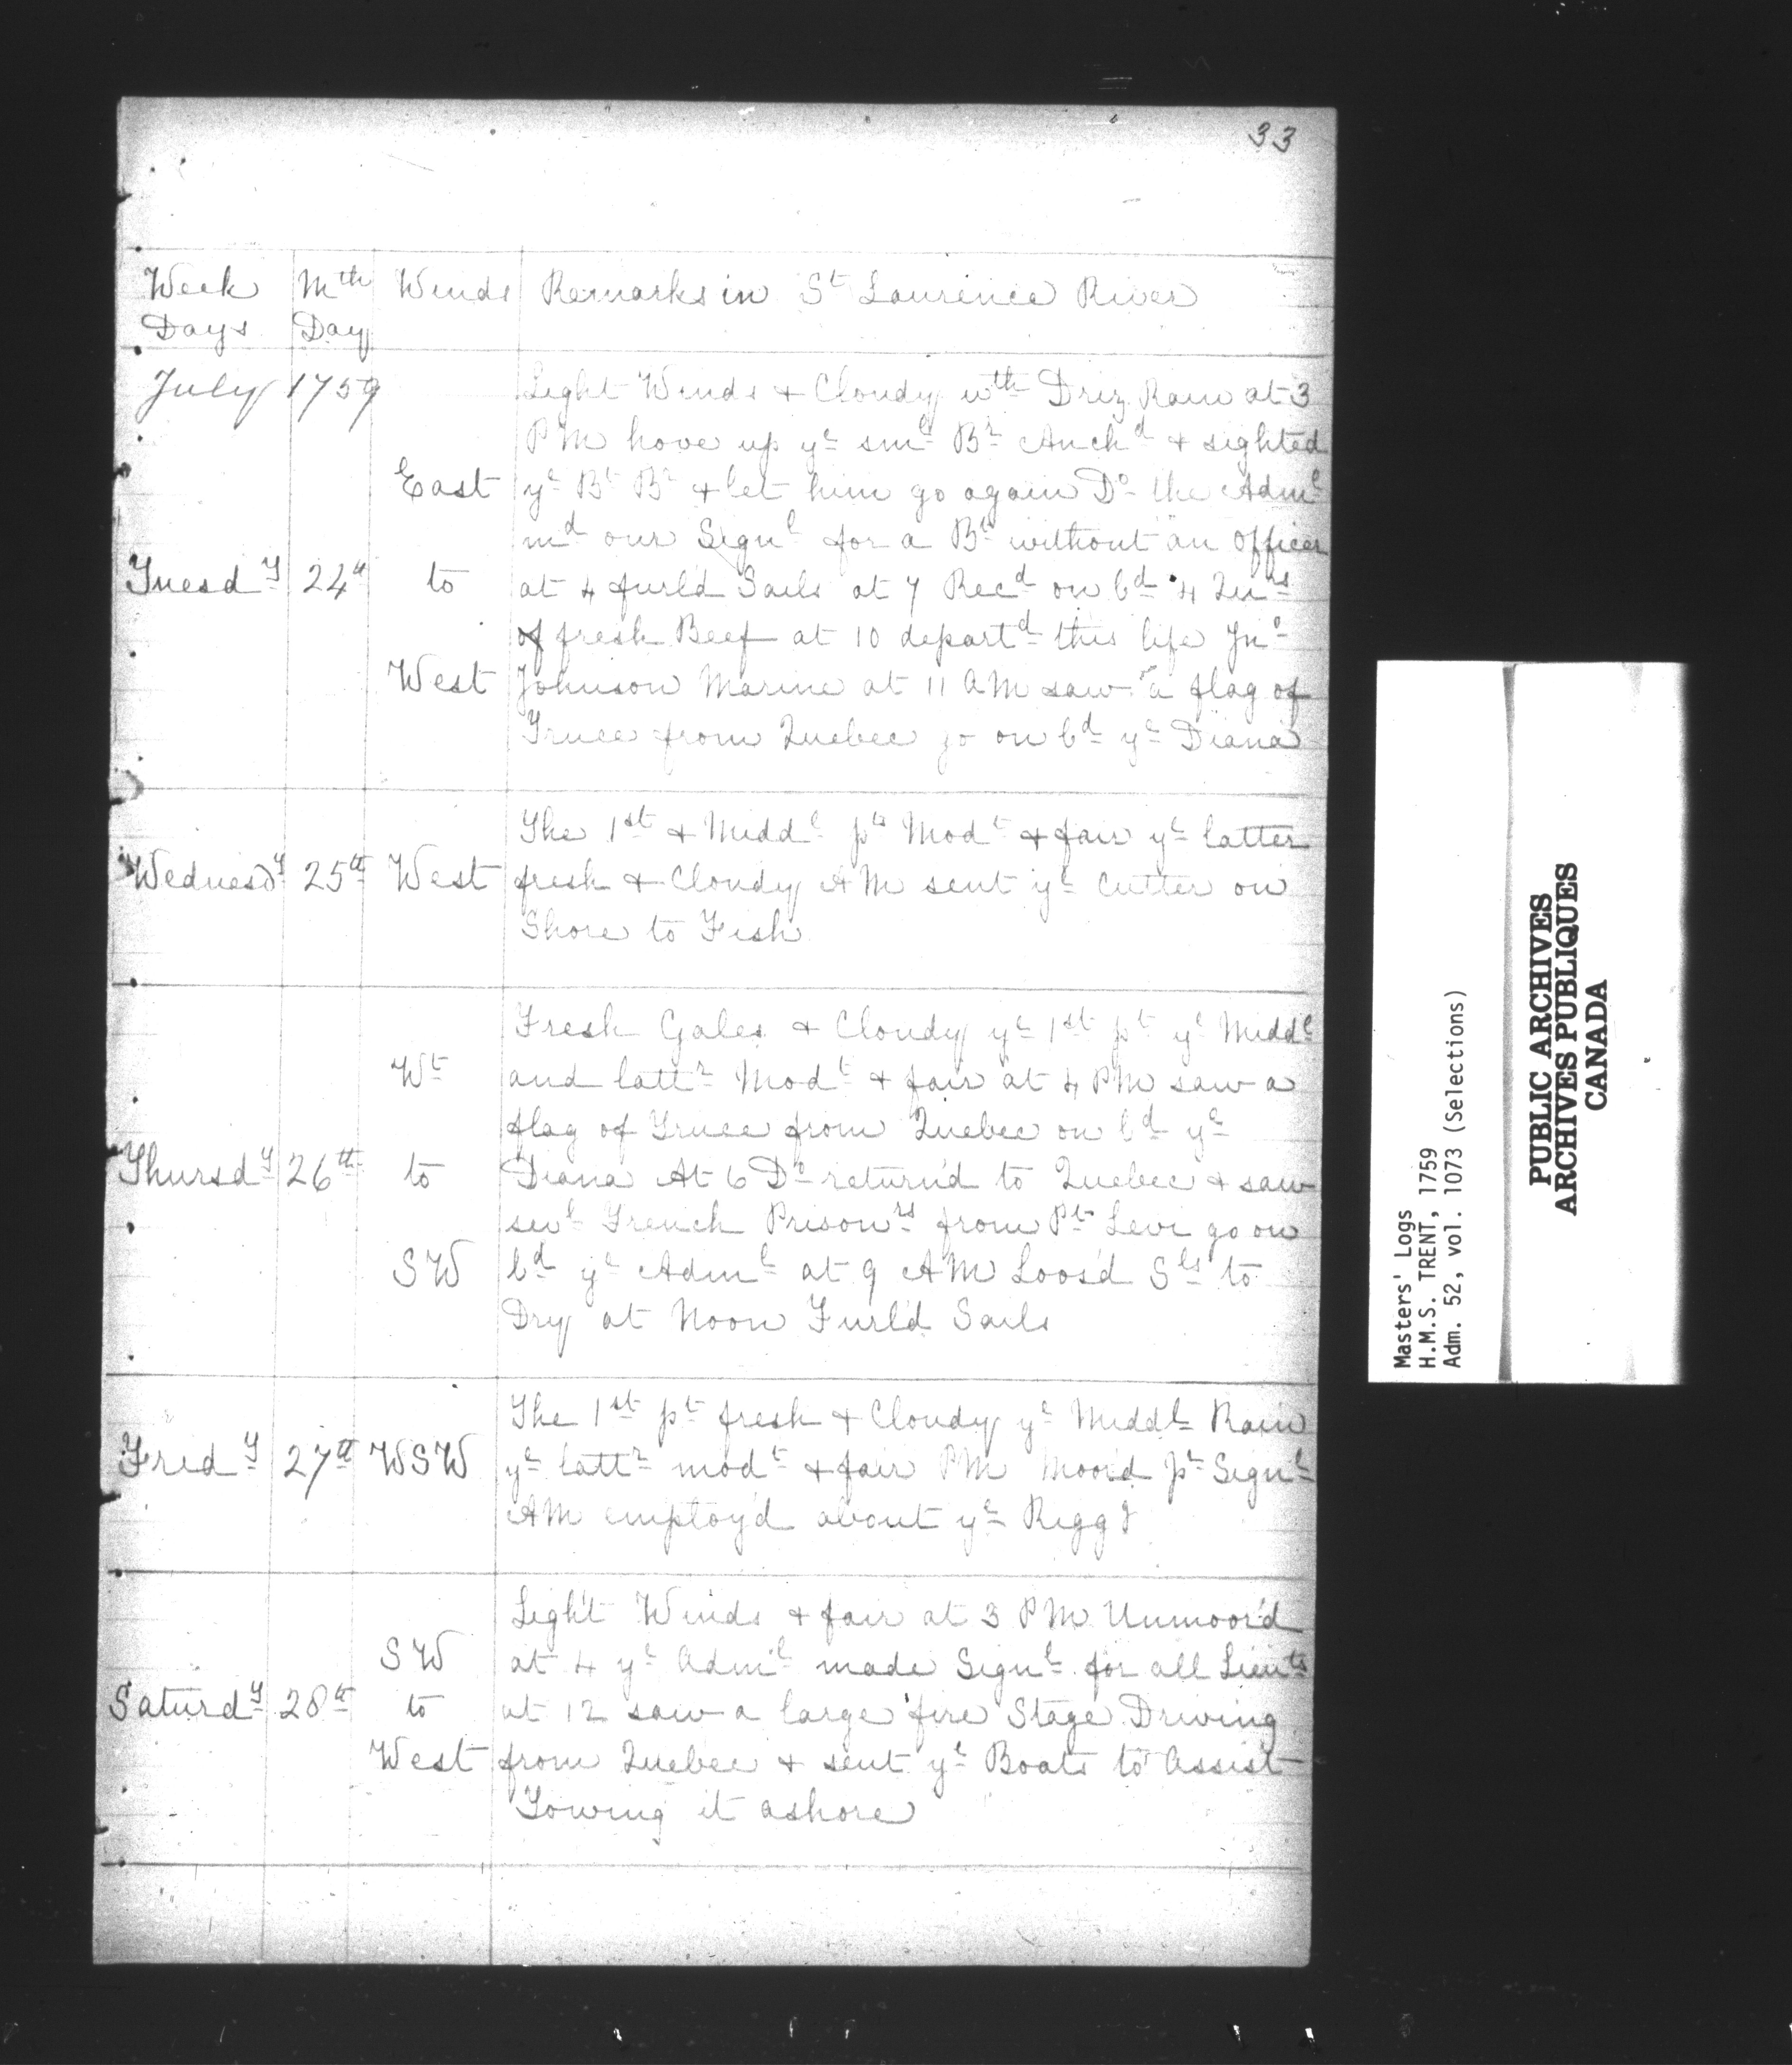 33
Week Days Mth Day Winds Remarks in St Laurence River
July 1759
Light Winds & Cloudy wth Driz Rain at 3
PM hove up ye sml Br Anchd & sighted
East ye Bt Br & let him go again Do the Adml
md our Signl for a Bt without an Officer
Tuesdy 24th to at 4 furld Sails at 7 Recd on bd 4 Qurs
of fresh Beef at 10 departd this life Jno
West Johnson Marine at 11 AM saw a flag of
Truce from Quebec go on bd ye Diana
The 1st & Middl pts Modt & fair ye latter
Wednesdy 25th West fresh & Cloudy AM sent ye Cutter on
Shore to Fish
Fresh Gales & Cloudy ye 1st pt ye Middl
Wt and lattr Modt & fair at 4 PM saw a
flag of Truce from Quebec on bd ye
Thursdy 26th to Diana At 6 Do return'd to Quebec & saw
sevl French Prisonrs from Pt Levi go on
SW bd ye Adml at 9 AM Loos'd Sls to
Dry at Noon Furld Sails
The 1st pt fresh & Cloudy ye Middl Rain
Fridy 27th WSW ye lattr modt & fair PM Moor'd pr Signl
AM employ'd about ye Riggg
Light Winds & fair at 3 PM Unmoor'd
SW at 4 ye Adml made Signl for all Lieuts
Saturdy 28th to at 12 saw a large fire Stage Driving
West from Quebec & sent ye Boats to Assist
Towing it ashore
Masters' Logs
H.M.S. TRENT, 1759
Adm. 52, vol. 1073 (Selections)
PUBLIC ARCHIVES
ARCHIVES PUBLIQUES
CANADA